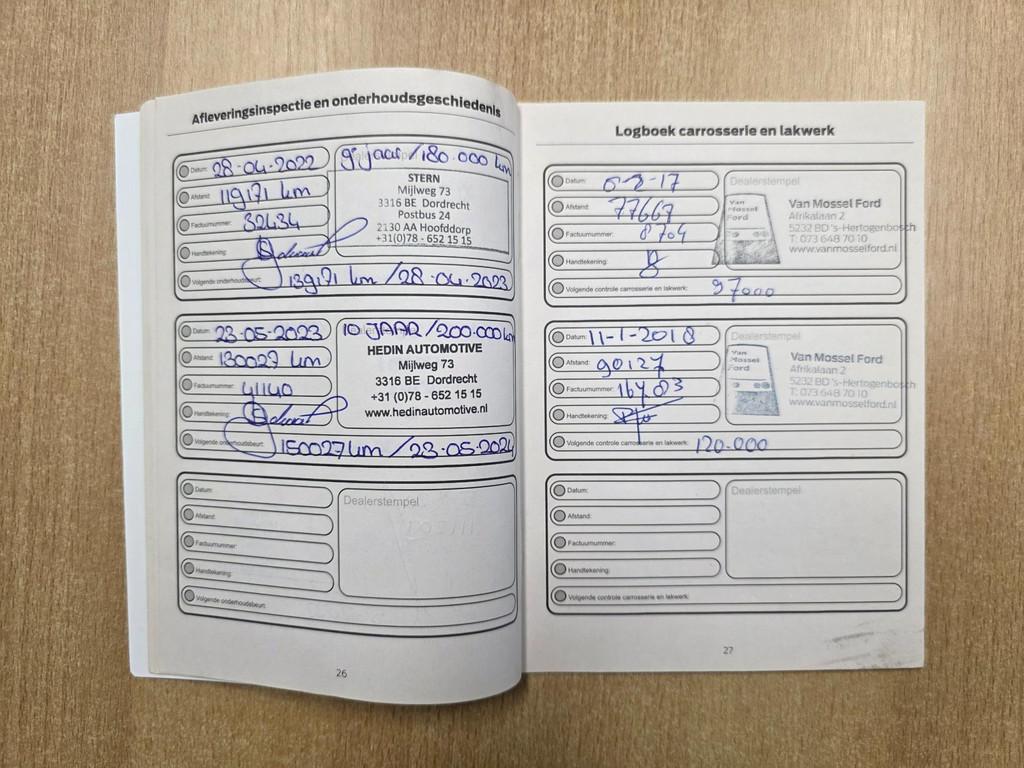 Afleveringsinspectie en onderhoudsgeschiedenis
Datum: 28-04-2022
Afstand: 119171 km
Factuurnummer: 32434
Handtekening:
Volgende onderhoudsbeurt: 139171 km / 28-04-2023
9e jaar / 180.000 km
STERN
Mijlweg 73
3316 BE Dordrecht
Postbus 24
2130 AA Hoofddorp
+31(0)78 - 652 15 15
Datum: 23-05-2023
Afstand: 130027 km
Factuurnummer: 41140
Handtekening:
Volgende onderhoudsbeurt: 150027 km / 23-05-2024
10 JAAR / 200.000 km
HEDIN AUTOMOTIVE
Mijlweg 73
3316 BE Dordrecht
+31 (0)78 - 652 15 15
www.hedinautomotive.nl
Datum:
Afstand:
Factuurnummer:
Handtekening:
Volgende onderhoudsbeurt:
Dealerstempel
26
Logboek carrosserie en lakwerk
Datum:
Afstand: 77667
Factuurnummer: 8704
Handtekening:
Volgende controle carrosserie en lakwerk: 97000
Dealerstempel
Van Mossel Ford
Van Mossel Ford
Afrikalaan 2
5232 BD 's-Hertogenbosch
T: 073 648 70 10
www.vanmosselford.nl
Datum: 11-1-2018
Afstand: 90127
Factuurnummer: 16483
Handtekening:
Volgende controle carrosserie en lakwerk: 120.000
Dealerstempel
Van Mossel Ford
Van Mossel Ford
Afrikalaan 2
5232 BD 's-Hertogenbosch
T: 073 648 70 10
www.vanmosselford.nl
Datum:
Afstand:
Factuurnummer:
Handtekening:
Volgende controle carrosserie en lakwerk:
Dealerstempel
27